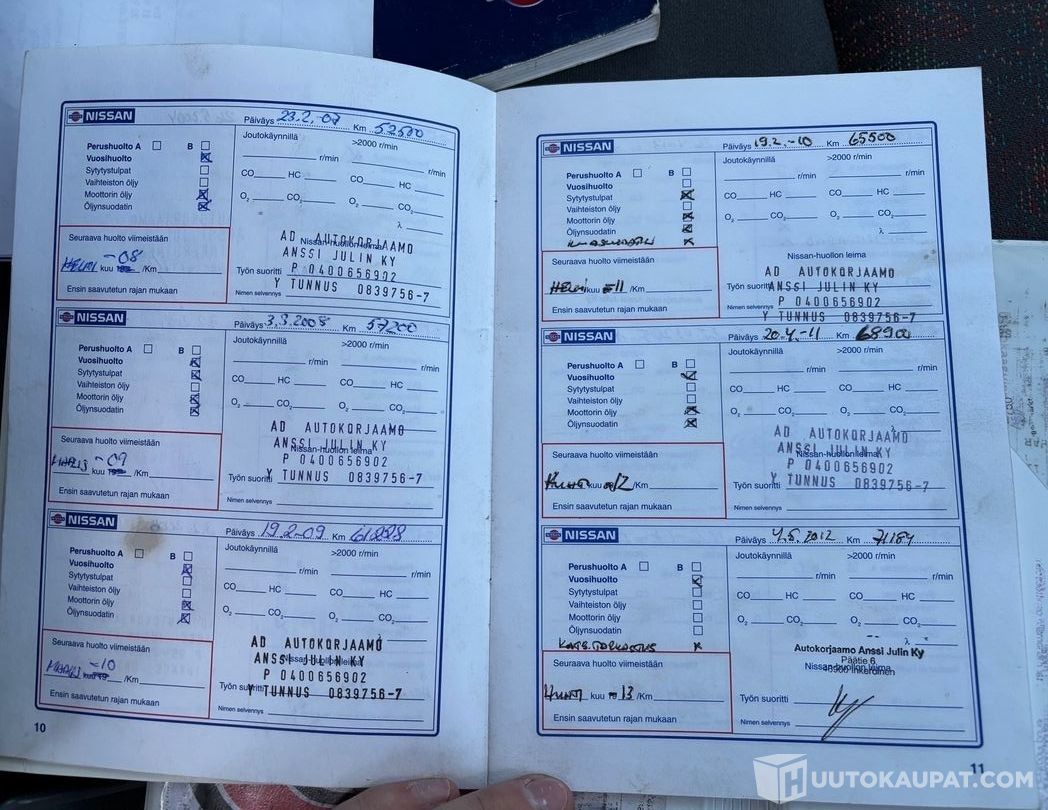 NISSAN
Päiväys 23.2.-07 Km 53500
Perushuolto A B
Vuosihuolto
Sytytystulpat
Vaihteiston öljy
Moottorin öljy
Öljynsuodatin
Joutokäynnillä
>2000 r/min
r/min
r/min
CO HC
CO HC
O2 CO2
O2 CO2
λ
Seuraava huolto viimeistään
HELMI -08
kuu /Km
Ensin saavutetun rajan mukaan
Nissan-huollon leima
AD AUTOKORJAAMO
ANSSI JULIN KY
P 0400656902
Y TUNNUS 0839756-7
Työn suoritti
Nimen selvennys
NISSAN
Päiväys 3.3.2008 Km 57200
Perushuolto A B
Vuosihuolto
Sytytystulpat
Vaihteiston öljy
Moottorin öljy
Öljynsuodatin
Joutokäynnillä
>2000 r/min
r/min
r/min
CO HC
CO HC
O2 CO2
O2 CO2
Seuraava huolto viimeistään
-09
kuu /Km
Ensin saavutetun rajan mukaan
AD AUTOKORJAAMO
ANSSI JULIN KY
Nissan-huollon leima
P 0400656902
Y TUNNUS 0839756-7
Työn suoritti
Nimen selvennys
NISSAN
Päiväys 19.2-09 Km
Perushuolto A B
Vuosihuolto
Sytytystulpat
Vaihteiston öljy
Moottorin öljy
Öljynsuodatin
Joutokäynnillä
>2000 r/min
r/min
r/min
CO HC
CO HC
O2 CO2
O2 CO2
Seuraava huolto viimeistään
-10
kuu /Km
Ensin saavutetun rajan mukaan
AD AUTOKORJAAMO
ANSSI JULIN KY
Nissan-huollon leima
P 0400656902
Y TUNNUS 0839756-7
Työn suoritti
Nimen selvennys
10
NISSAN
Päiväys 19.2.-10 Km 65500
Perushuolto A B
Vuosihuolto
Sytytystulpat
Vaihteiston öljy
Moottorin öljy
Öljynsuodatin
Joutokäynnillä
>2000 r/min
r/min
r/min
CO HC
CO HC
O2 CO2
O2 CO2
λ
Seuraava huolto viimeistään
HELMI kuu -11 /Km
Ensin saavutetun rajan mukaan
Nissan-huollon leima
AD AUTOKORJAAMO
Työn suoritti
ANSSI JULIN KY
P 0400656902
Nimen selvennys
Y TUNNUS 0839756-7
NISSAN
Päiväys 20.4.-11 Km 68900
Perushuolto A B
Vuosihuolto
Sytytystulpat
Vaihteiston öljy
Moottorin öljy
Öljynsuodatin
Joutokäynnillä
>2000 r/min
r/min
r/min
CO HC
CO HC
O2 CO2
O2 CO2
λ
Seuraava huolto viimeistään
HUHTI kuu 12 /Km
Ensin saavutetun rajan mukaan
AD AUTOKORJAAMO
ANSSI JULIN KY
Nissan-huollon leima
P 0400656902
Työn suoritti
Y TUNNUS 0839756-7
Nimen selvennys
NISSAN
Päiväys 4.5.2012 Km 71184
Perushuolto A B
Vuosihuolto
Sytytystulpat
Vaihteiston öljy
Moottorin öljy
Öljynsuodatin
KATS.TARKASTUS
Joutokäynnillä
>2000 r/min
r/min
r/min
CO HC
CO HC
O2 CO2
O2 CO2
λ
Seuraava huolto viimeistään
HUHTI kuu 13 /Km
Ensin saavutetun rajan mukaan
Autokorjaamo Anssi Julin Ky
Päätie 6
Nissan-huollon leima
Inkeroinen
Työn suoritti
Nimen selvennys
11
HUUTOKAUPAT.COM